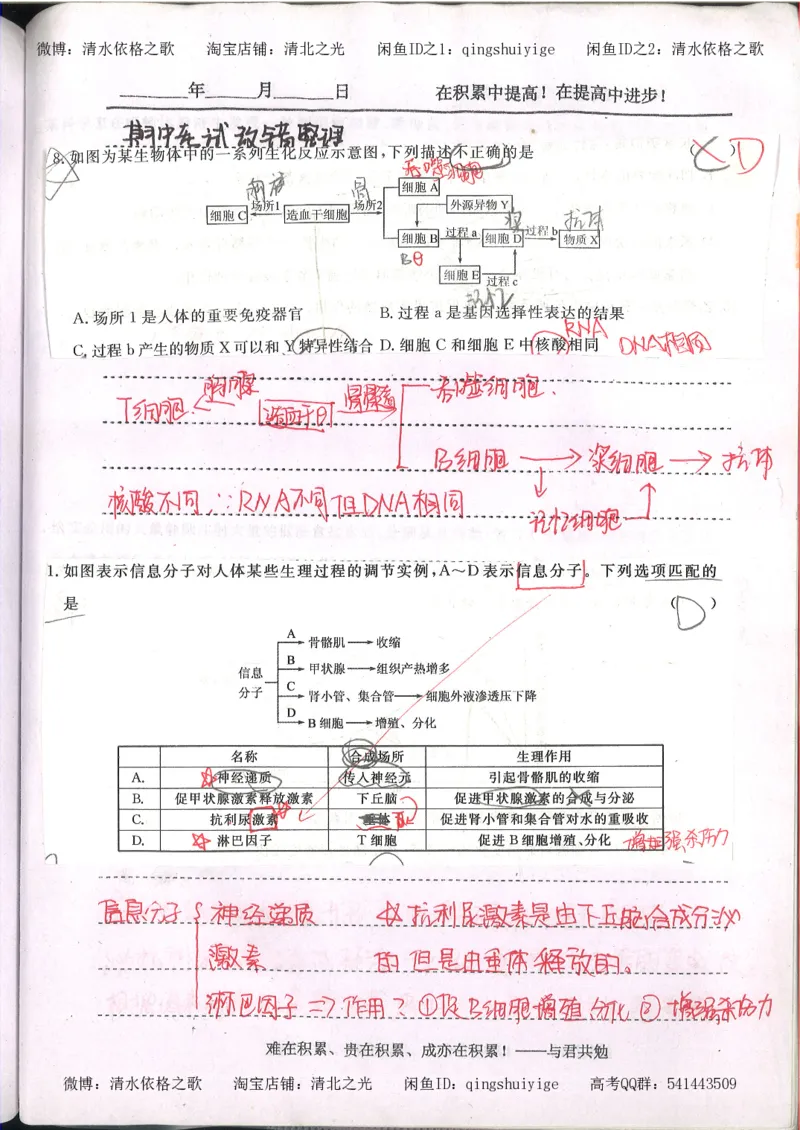 微博：清水依格之歌 淘宝店铺：清北之光 闲鱼ID之1：qingshuiyige 闲鱼ID之2：清水依格之歌
年 月 日 在积累中提高！在提高中进步！
期中考试改错整理
8. 如图为某生物体中的一系列生化反应示意图，下列描述不正确的是 （ ） D
吞噬细胞
骨
细胞 A
场所1 场所2
外源异物 Y
细胞 C 造血干细胞
浆 抗体
细胞 B 过程 a 细胞 D 过程 b 物质 X
B
细胞 E 过程 c
记忆
A. 场所 1 是人体的重要免疫器官 B. 过程 a 是基因选择性表达的结果
RNA
C. 过程 b 产生的物质 X 可以和 Y 特异性结合 D. 细胞 C 和细胞 E 中核酸相同 DNA相同
胸腺 骨髓 吞噬细胞.
T细胞 造血干C
B细胞 浆细胞 抗体
核酸不同 ∵RNA不同但DNA相同
记忆细胞
1. 如图表示信息分子对人体某些生理过程的调节实例，A～D 表示信息分子。下列选项匹配的
是 （ D ）
A 骨骼肌 收缩
B 甲状腺 组织产热增多
信息
分子
C 肾小管、集合管 细胞外液渗透压下降
D B 细胞 增殖、分化
名称 合成场所 生理作用
A. 神经递质 传入神经元 引起骨骼肌的收缩
B. 促甲状腺激素释放激素 下丘脑 促进甲状腺激素的合成与分泌
C. 抗利尿激素 垂体 促进肾小管和集合管对水的重吸收
D. 淋巴因子 T 细胞 促进 B 细胞增殖、分化 增加强杀伤力
信息分子 神经递质 抗利尿激素是由下丘脑合成分泌
激素 的 但是由垂体释放的。
淋巴因子 => 作用？ ①促B细胞增殖分化 ② 增强杀伤力
难在积累、贵在积累、成亦在积累！——与君共勉
微博：清水依格之歌 淘宝店铺：清北之光 闲鱼ID：qingshuiyige 高考QQ群：541443509